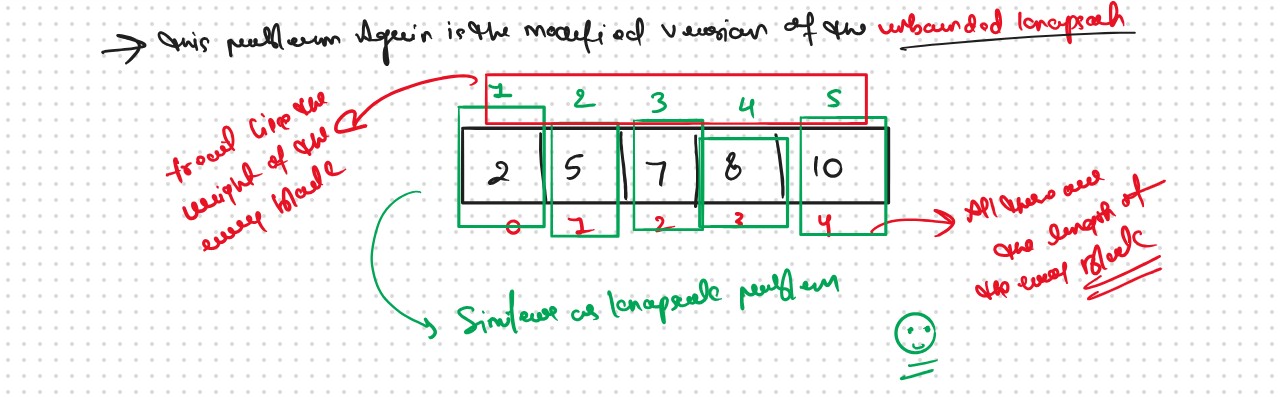 → this problem again is the modified version of the unbounded knapsack
1 2 3 4 5
treat like the
weight of the
every block
2 5 7 8 10
0 1 2 3 4
All these are
the length of
the every block
Similar as knapsack problem